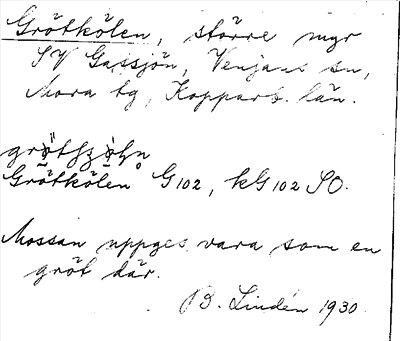 Grötkölen, större myr
SV Gassjön, Venjans sn,
Mora tg, Kopparb. län.
Grötkölen G102, kG102 SO.
Mossan uppges vara som en
gröt där.
B. Lindén 1930.